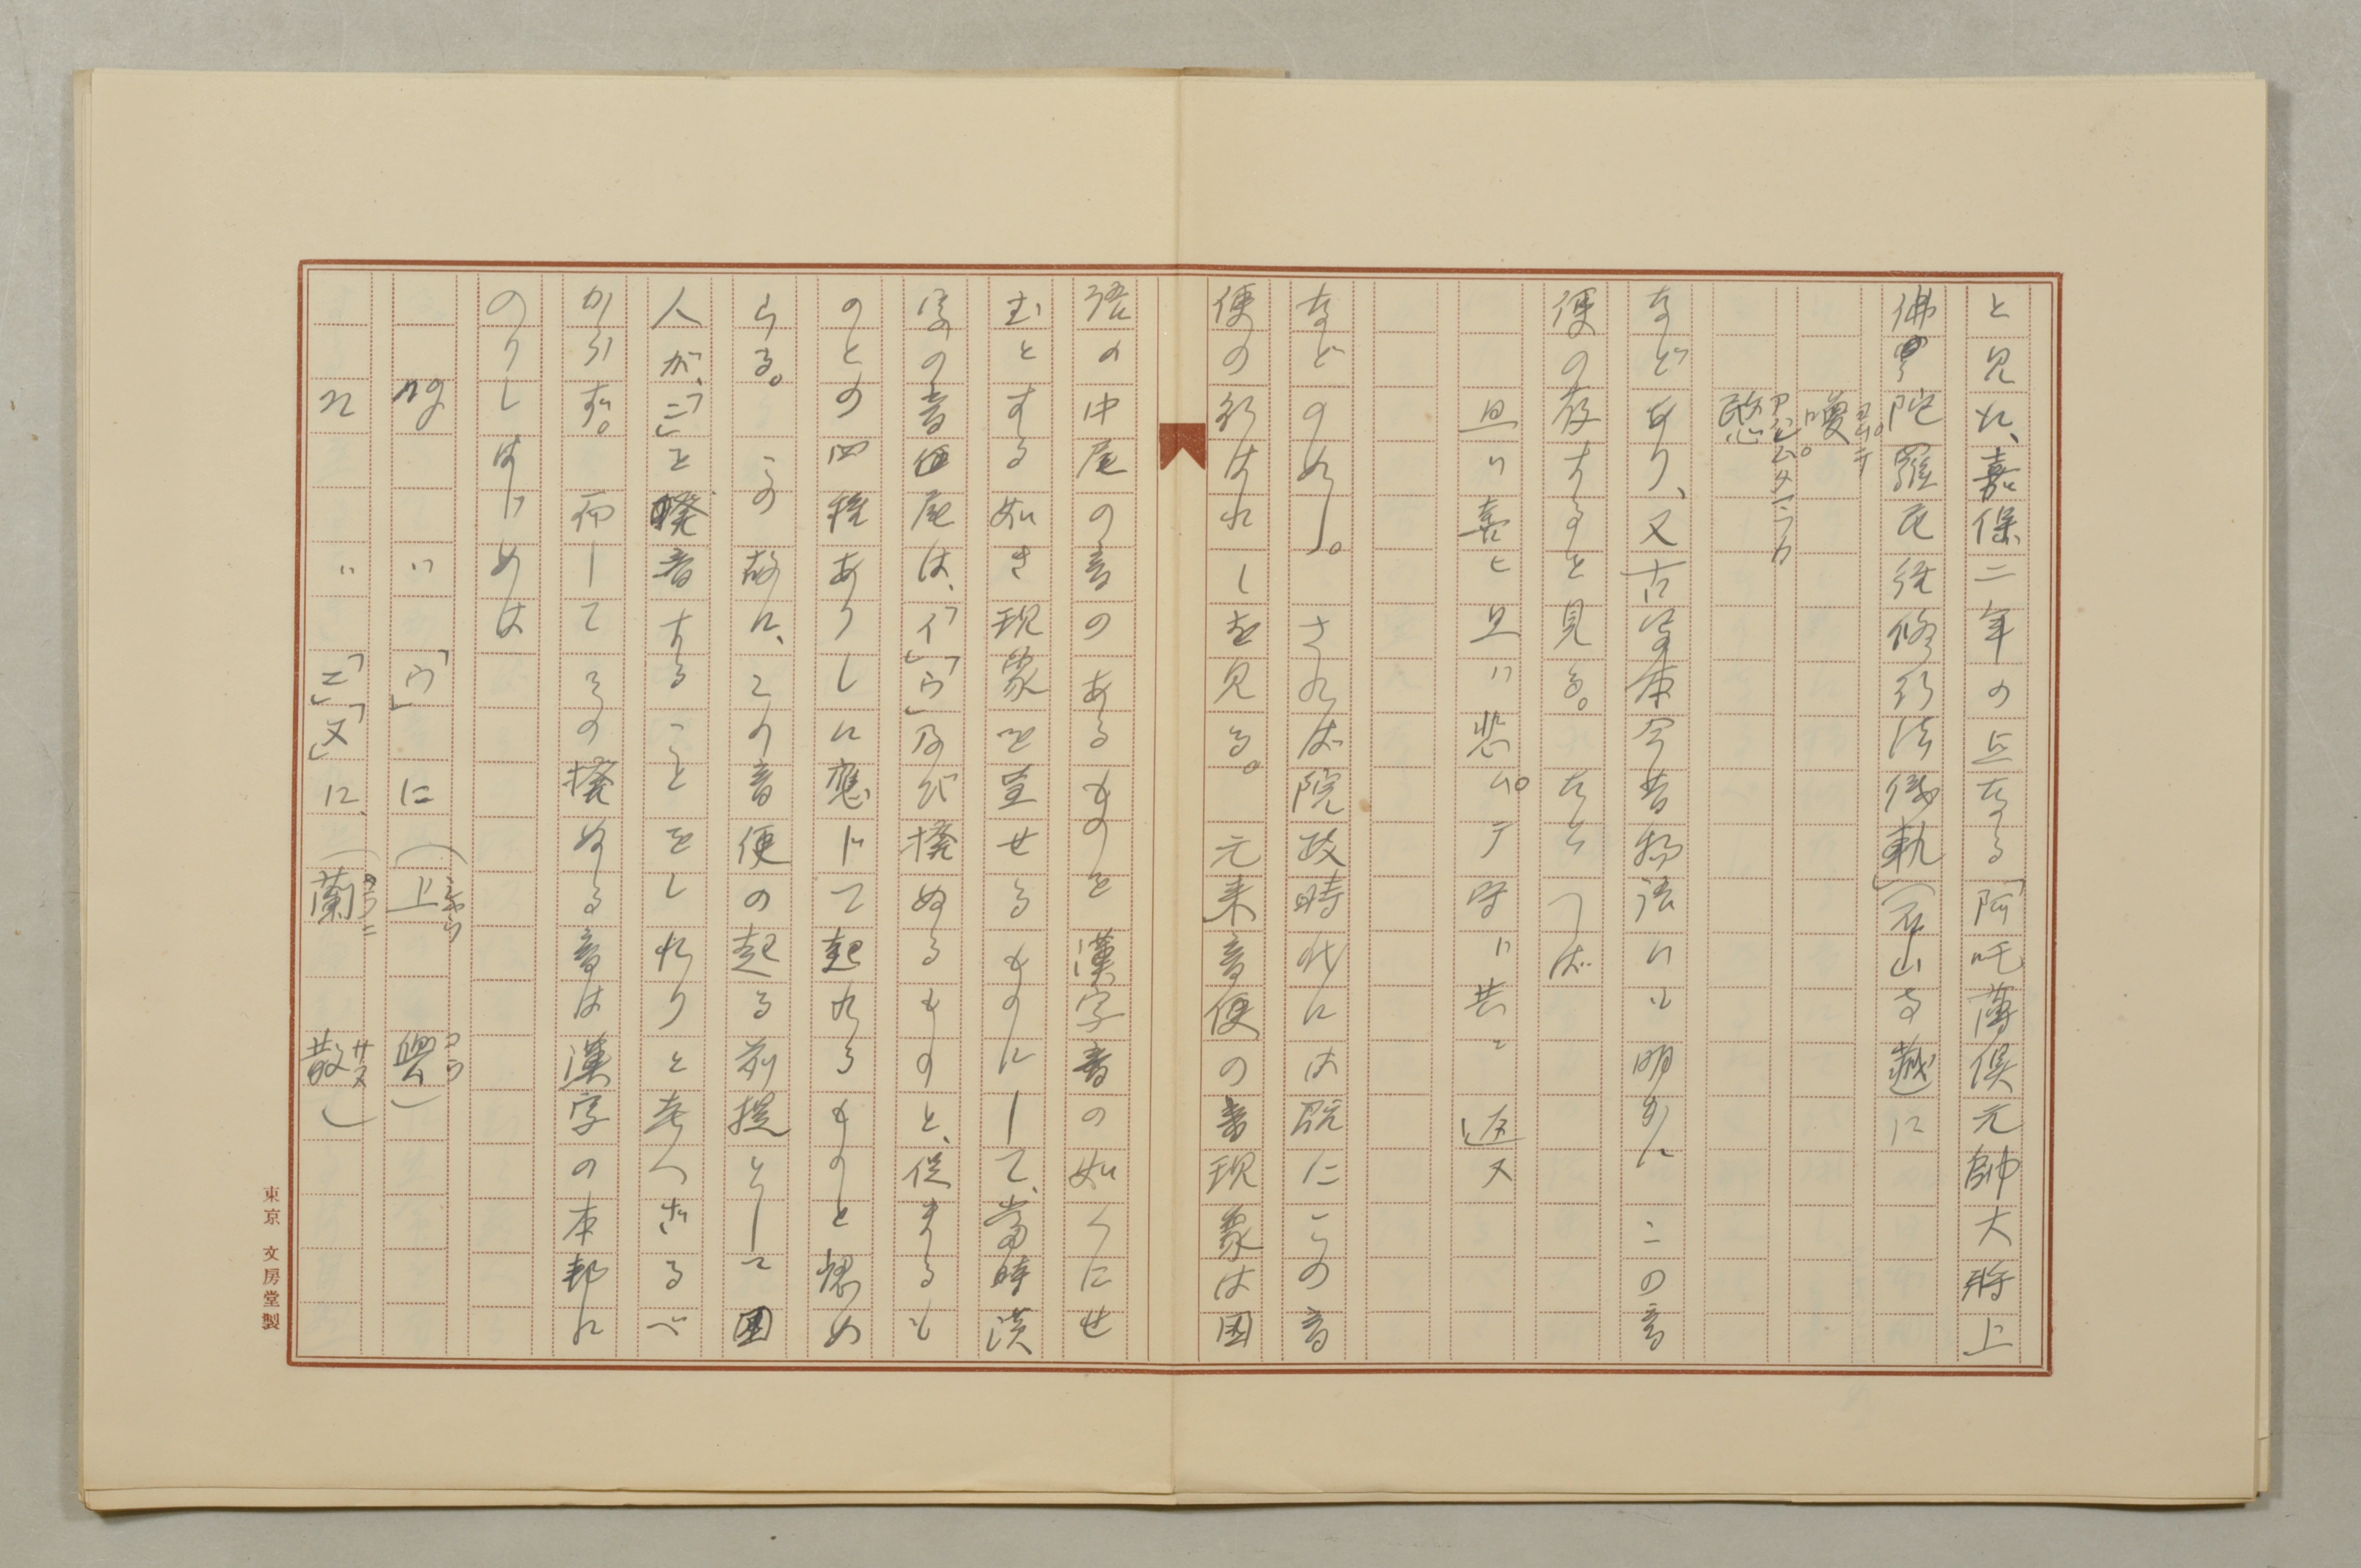 と見え、嘉保二年の点なる「阿吒薄倶元帥大将上
佛陀羅尼経修行法儀軌」(石山寺蔵)に
嗅
愍
などあり、又古写本今昔物語にも明かにこの音
便の存するを見る。たとへば
且ハ喜ビ且ハ悲ムデ守ハ共ニ返ヌ
などのめし。されば院政時代には既にこの音
便の行はれしを見る。元来音便の音現象は国
語の中尾の音のあるものを漢字音の如くにせ
むとする如き現象を呈せるものにして、当時漢
字の音の尾は、「イ」「ウ」及び撥ぬるものと、促まるも
のとの四種ありしに應じて起れるものと認め
らる。この故に、この音便の起る前提として国
人が、「ン」を撥音することをしれりと考へざるべ
からず。而してその撥ぬる音は漢字の本邦に
のりしはじめは
ng 〃 「ウ」に(上 興)
n 〃 「ニ」「ヌ」に、(蘭 散)
東京 文房堂製